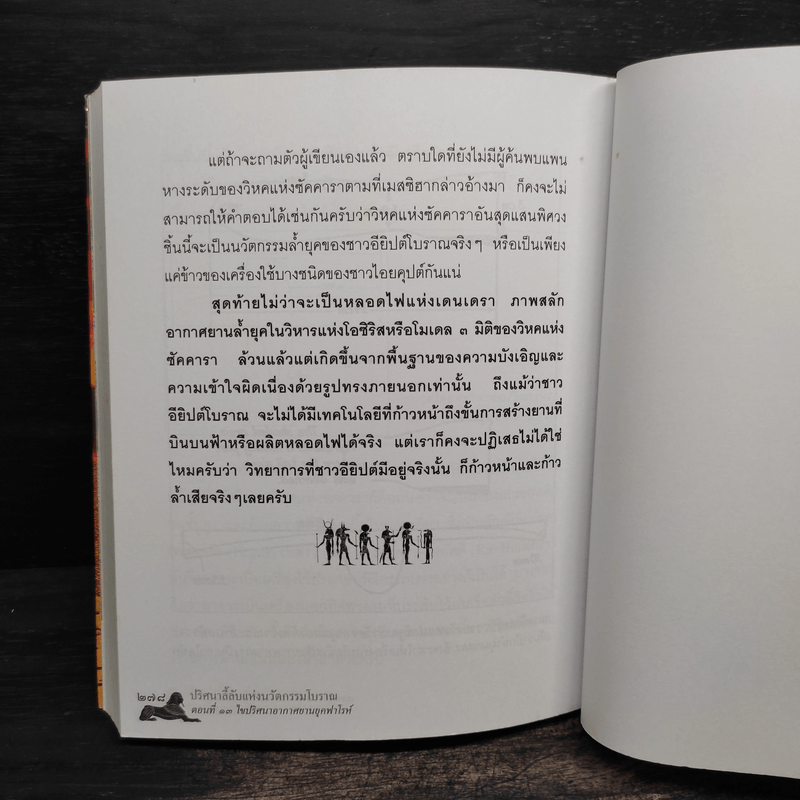 แต่ถ้าจะถามตัวผู้เขียนเองแล้ว ตราบใดที่ยังไม่มีผู้ค้นพบแพน
หางระดับของวิหคแห่งซัคคาราตามที่เมสซิฮากล่าวอ้างมา ก็คงจะไม่
สามารถให้คำตอบได้เช่นกันครับว่าวิหคแห่งซัคคาราอันสุดแสนพิศวง
ชิ้นนี้จะเป็นนวัตกรรมล้ำยุคของชาวอียิปต์โบราณจริงๆ หรือเป็นเพียง
แค่ข้าวของเครื่องใช้บางชนิดของชาวไอยคุปต์กันแน่
สุดท้ายไม่ว่าจะเป็นหลอดไฟแห่งเดนเดรา ภาพสลัก
อากาศยานล้ำยุคในวิหารแห่งโอซิริสหรือโมเดล ๓ มิติของวิหคแห่ง
ซัคคารา ล้วนแล้วแต่เกิดขึ้นจากพื้นฐานของความบังเอิญและ
ความเข้าใจผิดเนื่องด้วยรูปทรงภายนอกเท่านั้น ถึงแม้ว่าชาว
อียิปต์โบราณ จะไม่ได้มีเทคโนโลยีที่ก้าวหน้าถึงขั้นการสร้างยานที่
บินบนฟ้าหรือผลิตหลอดไฟได้จริง แต่เราก็คงจะปฏิเสธไม่ได้ใช่
ไหมครับว่า วิทยาการที่ชาวอียิปต์มีอยู่จริงนั้น ก็ก้าวหน้าและก้าว
ล้ำเสียจริงๆเลยครับ
๒๗๘ ปริศนาลี้ลับแห่งนวัตกรรมโบราณ
ตอนที่ ๑๓ ไขปริศนาอากาศยานยุคฟาโรห์